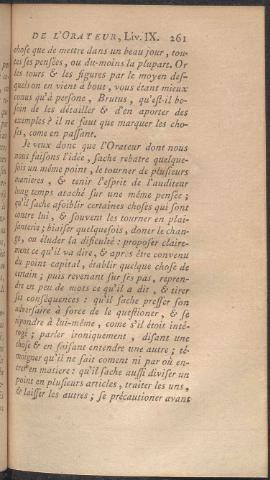 DE L'ORATEUR, Liv. IX. 261
chose que de mettre dans un beau jour, tou-
tes ses pensées, ou du-moins la plupart. Or
les tours & les figures par le moyen des-
quels on en vient à bout, vous étant mieux
conus qu'à persone, Brutus, qu'est-il be-
soin de les détailler & d'en aporter des
exemples? il ne faut que marquer les cho-
ses, come en passant.
Je veux donc que l'Orateur dont nous
nous faisons l'idée, sache rebatre quelque-
fois un même point, le tourner de plusieurs
manieres, & tenir l'esprit de l'auditeur
long temps ataché sur une même pensée;
qu'il sache afoiblir certaines choses qui sont
contre lui, & souvent les tourner en plai-
santerie; biaiser quelquefois, doner le chan-
ge, ou éluder la dificulté: proposer claire-
ment ce qu'il va dire, & après être convenu
du point capital, établir quelque chose de
certain; puis revenant sur ses pas, repren-
dre en peu de mots ce qu'il a dit, & tirer
ses conséquences: qu'il sache presser son
adversaire à force de le questioner, & se
répondre à lui-même, come s'il étoit inté-
rogé; parler ironiquement, disant une
chose & en faisant entendre une autre; té-
moigner qu'il ne sait coment ni par où en-
trer en matiere: qu'il sache aussi diviser un
point en plusieurs articles, traiter les uns,
& laisser les autres; se précautioner avant